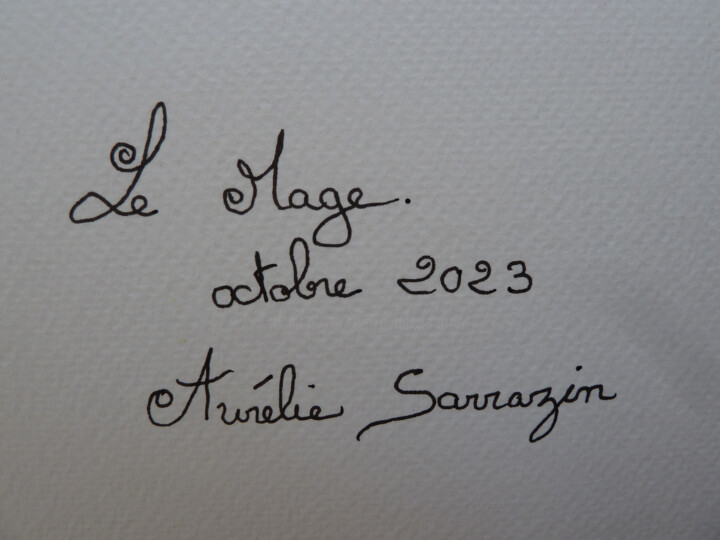 Le Mage.
octobre 2023
Aurélie Sarrazin